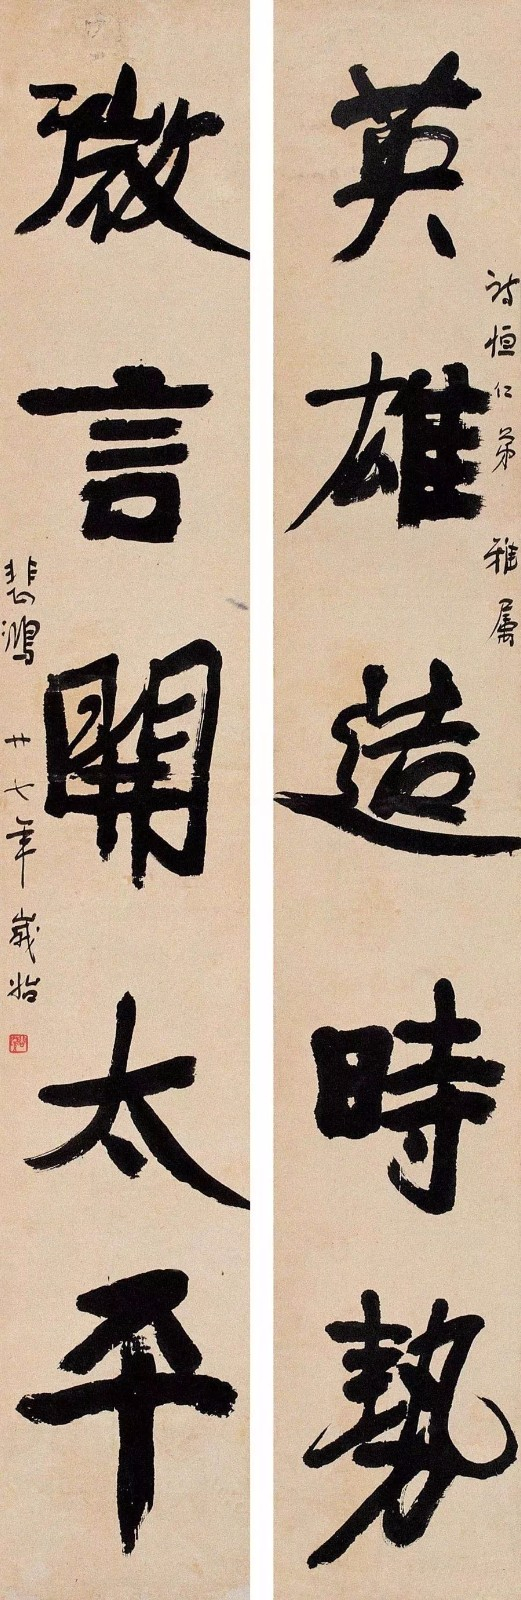 英雄造時勢
詩恒仁弟 雅属
微言開太平
悲鴻 廿七年歲始